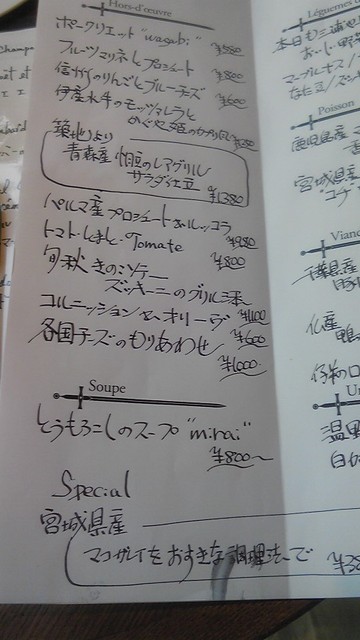 Hors-d'œuvre
ポークリエット "wasabi" ¥580
フルーツマリネとプロシュート ¥800
信州のりんごとブルーチーズ ¥600
伊産水牛のモッツァレラと
めぐみ姫のカプリ風
築地より
青森産 帆立のレアグリル
サラダ仕立 ¥1380
パルマ産プロシュート&ルッコラ
¥980
トマト・しまと・Tomate ¥800
旬秋 きのこソテー
ズッキーニのグリル添え ¥1100
コルニッション&オリーヴ ¥600
各国チーズのもりあわせ ¥1000
Soupe
とうもろこしのスープ "mirai"
¥800
Special
宮城県産
マコガレイをおすきな調理法で
Légumes
本日も三浦
おいしい野
マーブルナス
Poisson
鹿児島産
宮城県産
Viande
千葉県産
仏産
鴨
仔羊のロ
温野
白か
Champa